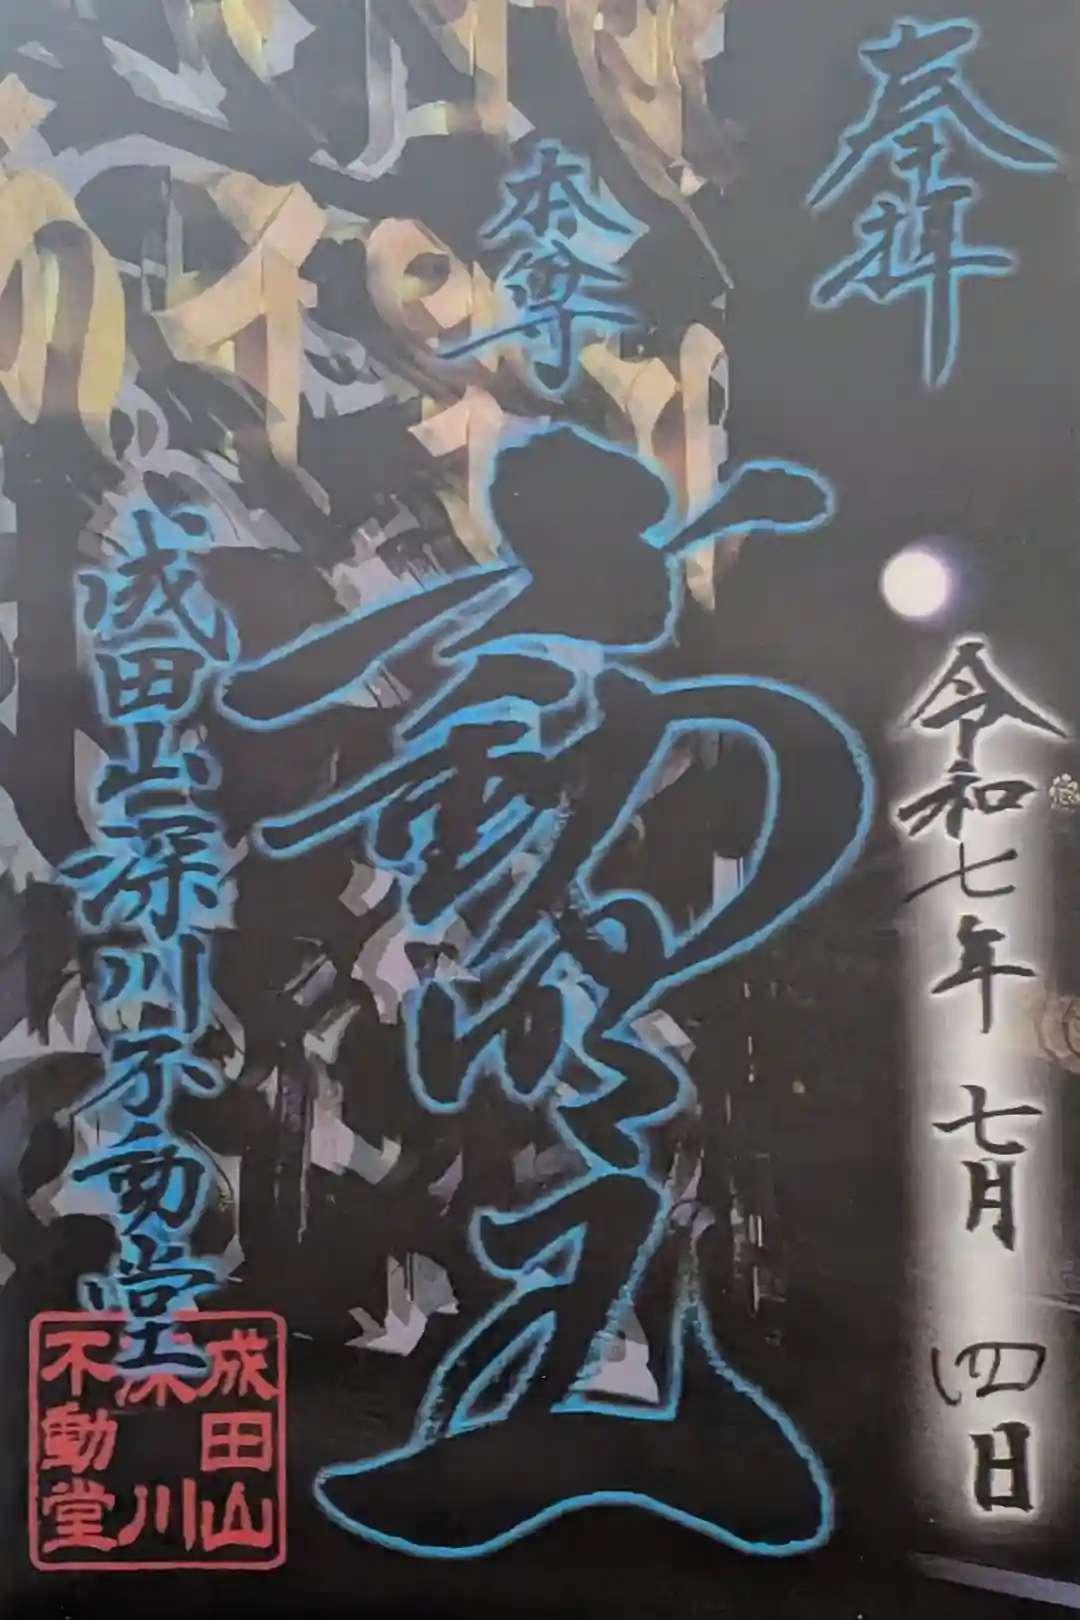 奉拝
令和七年 七月 四日
本尊
不動明王
成田山深川不動堂
成田山
深川
不動堂